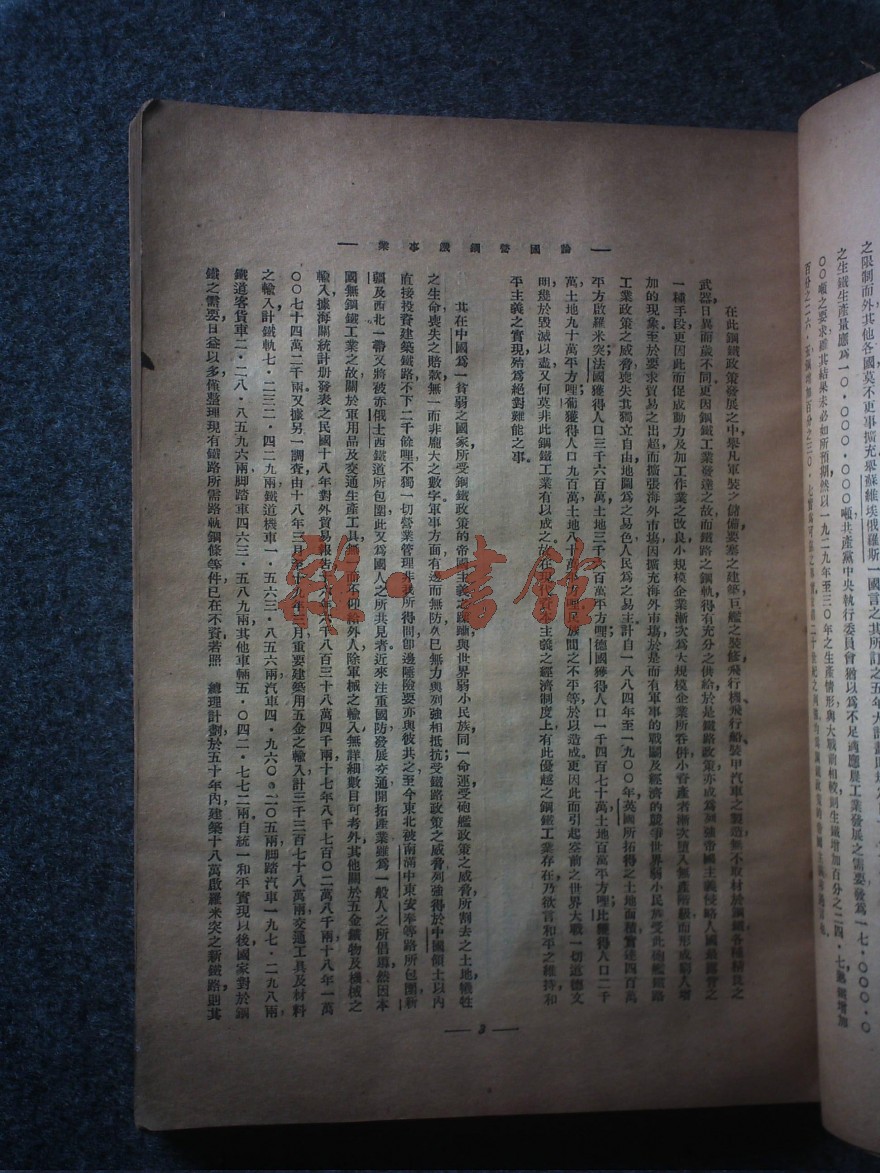 之限制而外其他各國莫不更事擴充舉蘇維埃俄羅斯一國言之其所訂之五年大計
之生鐵生產量應爲一〇·〇〇〇·〇〇〇噸共產黨中央執行委員會猶以爲不足適應農工業發展之需要發爲一七·〇〇〇·〇
〇〇噸之要求雖其結果未必如所預期然以一九二九年至三〇年之生產情形與大戰前相較則生鐵增加百分之二四·七
論國營鋼鐵事業
在此鋼鐵政策發展之中舉凡軍裝之儲備要塞之建築巨艦之裝修飛行機飛行船裝甲汽車之製造無不取材於鋼鐵各種精良之
武器日異而歲不同更因鋼鐵工業發達之故而鐵路之鋼軌得有充分之供給於是鐵路政策亦成爲列強帝國主義侵略人國最鋒銳之
一種手段更因此而促成動力及加工作業之改良小規模企業漸次爲大規模企業所吞併小資產者漸次墮入無產階級而形成窮人增
加的現象至於要求貿易之出超而擴張海外市場因擴充海外市場於是而有軍事的戰鬭及經濟的競爭世界弱小民族受此砲艦鐵路
工業政策之威脅喪失其獨立自由地圖爲之易色人民爲之易主計自一八八四年至一九〇〇年英國所拓得之土地面積實達四百萬
平方啟羅米突法國獲得人口三千六百萬土地三千六百萬平方哩德國獲得人口一千四百七十萬土地百萬平方哩比獲得人口二千
萬土地九十萬平方哩葡獲得人口九百萬土地八十萬平方哩民族間之不平等於以造成更因此而引起空前之世界大戰一切道德文
明提於毀滅以盡又何莫非此鋼鐵工業有以成之故在現代資本主義之經濟制度上有此優越之鋼鐵工業存在乃欲言和平之維持和
平主義之實現殆爲絕對難能之事
其在中國爲一貧弱之國家所受鋼鐵政策的帝國主義之蹂躪與世界弱小民族同一命運受砲艦政策之威脅所割去之土地犧牲
之生命喪失之賠款無一而非龐大之數字軍事方面有邊而無防久已無力與列強相抵抗受鐵路政策之威脅列強得於中國領土以內
直接投資建築鐵路不下二千餘哩不獨一切營業管理非我所得間卽邊陲險要亦與彼共之至今東北被南滿中東安奉等路所包圍新
疆及西北一帶又將被赤俄土西鐵道所包圍此又爲國人之所共見者近來注重國防發展交通開拓產業雖爲一般人之所倡導然因本
國無鋼鐵工業之故關於軍用品及交通生產工具無一而不仰給外人除軍械之輸入無詳細數目可考外其他關於五金鐵物及機械之
輸入據海關統計册發表之民國十八年對外貿易報告十六年六千八百三十八萬四千兩十七年八千七百〇二萬八千兩十八年一萬
〇〇七十四萬二千兩又據另一調查由十八年三月至十九年三月重要建築用五金之輸入計三千三百七十八萬兩交通工具及材料
之輸入計鐵軌七·二三二·四二九兩鐵道機車一·五六三·八五六兩汽車四·九六〇·二〇五兩脚踏汽車一九七·二九八兩
鐵道客貨車二·二八·八五九六兩脚踏車四六三·五八九兩其他車輛五·〇四二·七七二兩自統一和平實現以後國家對於鋼
鐵之需要日益以多僅整理現有鐵路所需路軌鋼條等件已在不貲若照 總理計劃於五十年內建築十八萬啟羅米突之新鐵路則其
3
雜書館